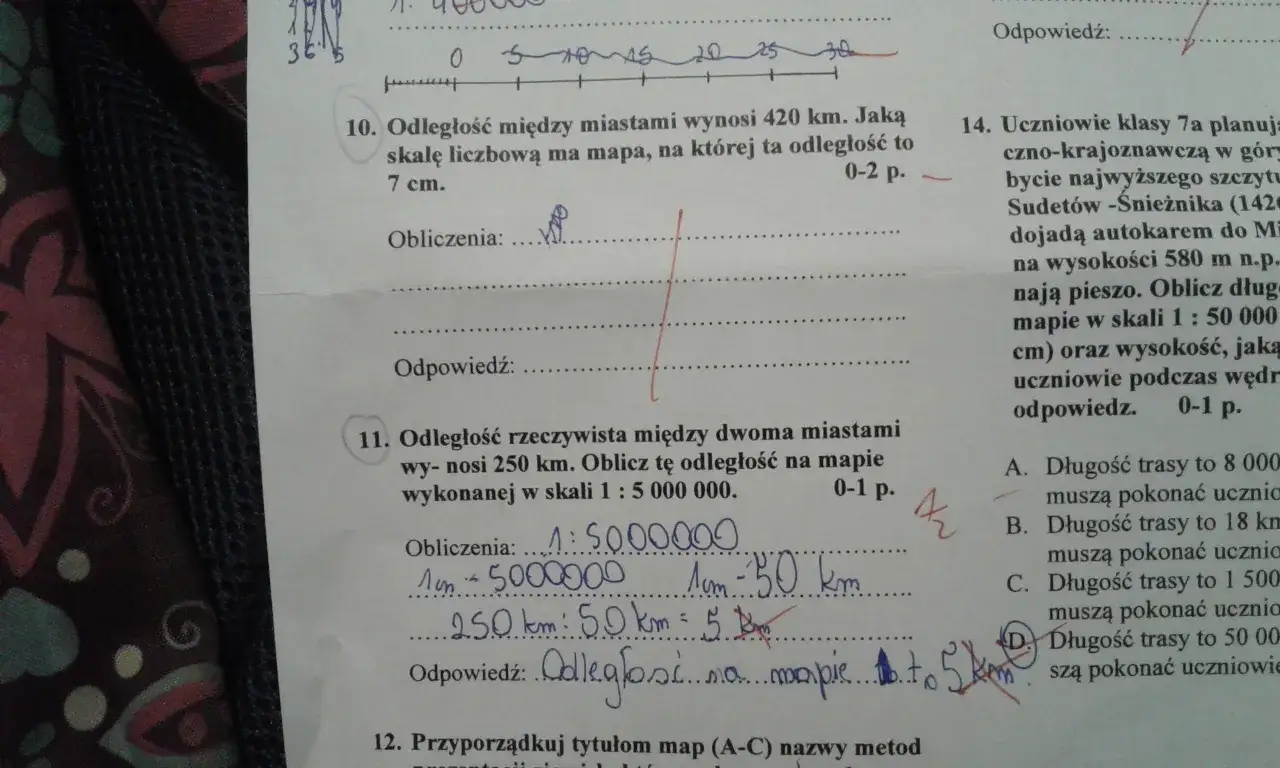 1: 400000
0 5 10 15 20 25 30
10. Odległość między miastami wynosi 420 km. Jaką
skalę liczbową ma mapa, na której ta odległość to
7 cm. 0-2 p.
Obliczenia:
Odpowiedź:
11. Odległość rzeczywista między dwoma miastami
wy- nosi 250 km. Oblicz tę odległość na mapie
wykonanej w skali 1 : 5 000 000. 0-1 p.
Obliczenia: 1:5000000
1cm - 5000000 1cm - 50 km
250 km : 50 km = 5 km
Odpowiedź: Odległość na mapie to 5 km
12. Przyporządkuj tytułom map (A-C) nazwy metod
Odpowiedź:
14. Uczniowie klasy 7a planuj
czno-krajoznawczą w gór
bycie najwyższego szczytu
Sudetów -Śnieżnika (142
dojadą autokarem do Mi
na wysokości 580 m n.p.
nają pieszo. Oblicz dług
mapie w skali 1 : 50 000
cm) oraz wysokość, jaką
uczniowie podczas wędr
odpowiedz. 0-1 p.
A. Długość trasy to 8 000
muszą pokonać uczni
B. Długość trasy to 18 km
muszą pokonać uczni
C. Długość trasy to 1 500
muszą pokonać uczni
D. Długość trasy to 50 00
szą pokonać uczniowie